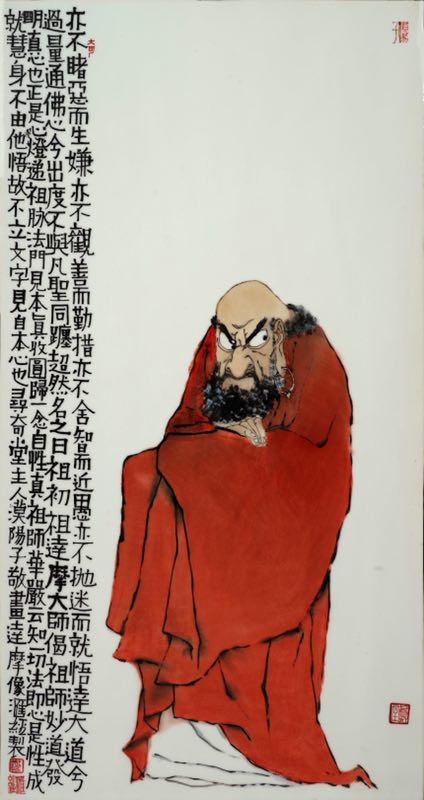 亦不睹惡而生嫌亦不觀善而勤措亦不舍智而近愚亦不抛迷而就悟達大道今
過量通佛心今出度不與凡聖同躔超然名之曰祖初祖達摩大師偈祖師妙道發
明真也正是心燈遞祖脉法門見本真收圓歸一念自性真祖師華嚴云知一切法即心是性成
就慧身不由他悟故不立文字見自本心也尋奇堂主人漠陽子敬畫達摩像滙製